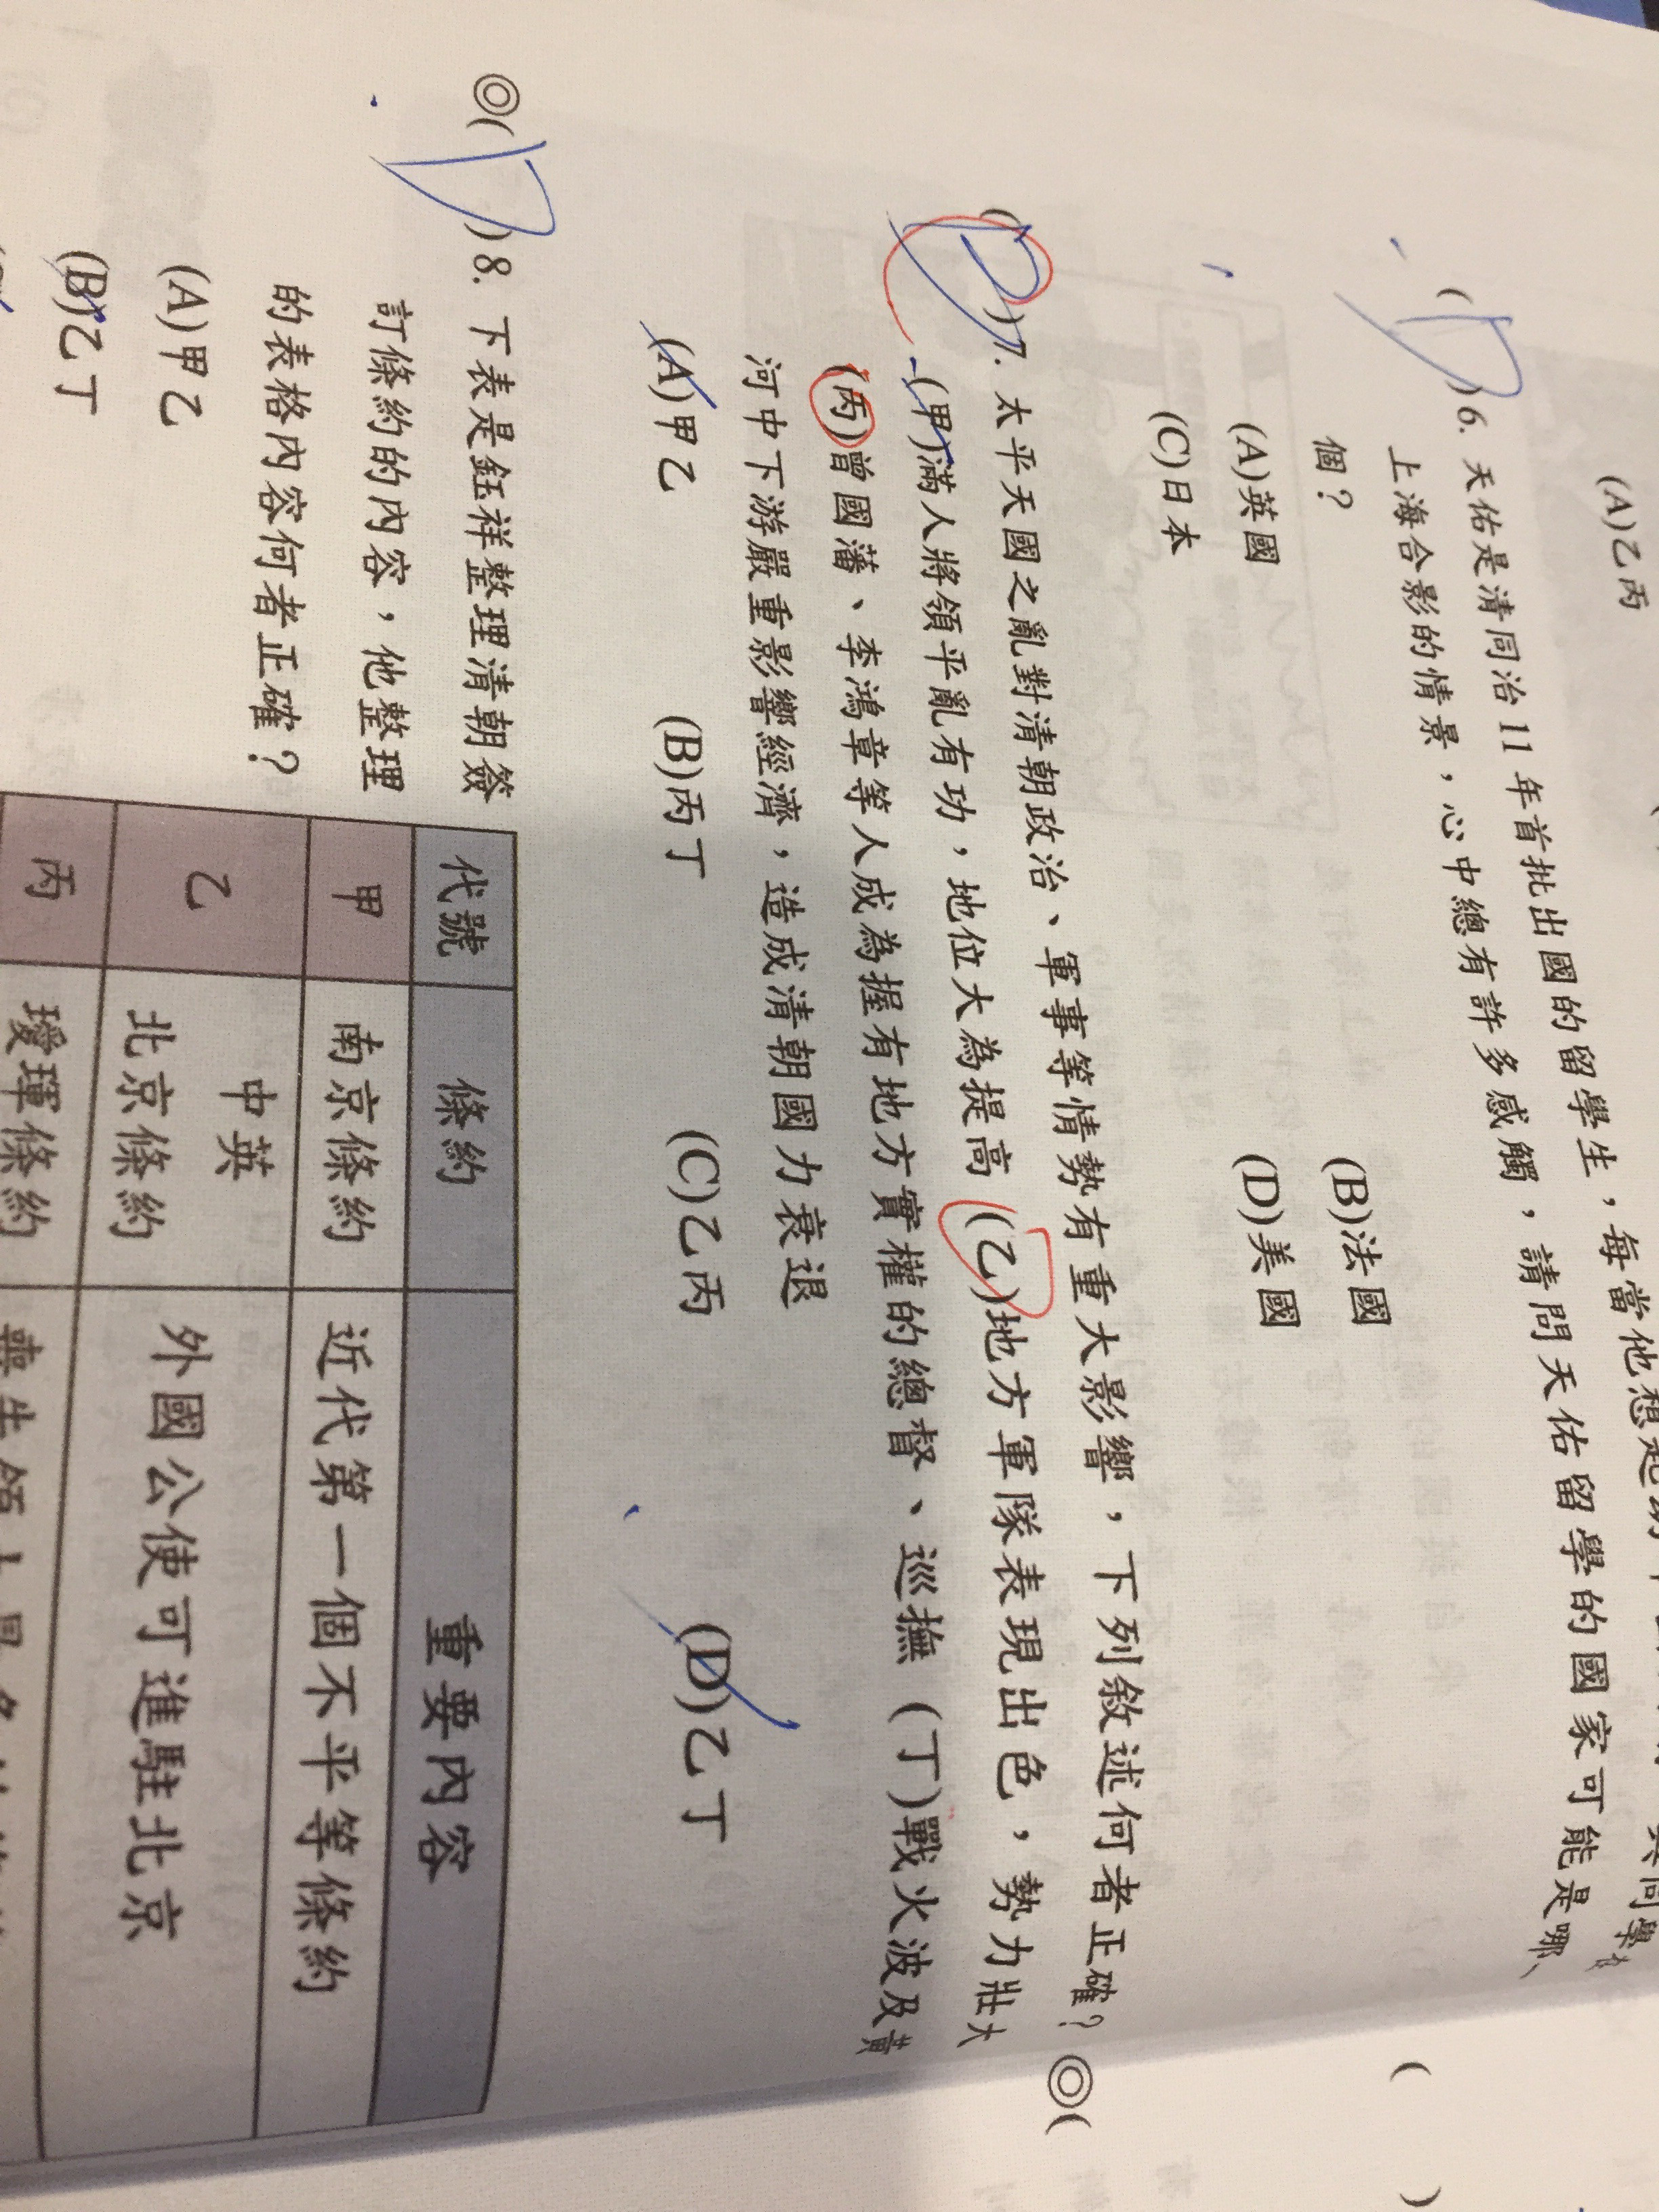 (A)乙丙
(D)6. 天佑是清同治11年首批出國的留學生，每當他想起
上海合影的情景，心中總有許多感觸，請問天佑留學的國家可能是哪
個？
(A)英國 (B)法國
(C)日本 (D)美國
(D)7. 太平天國之亂對清朝政治、軍事等情勢有重大影響，下列敘述何者正確？
(甲)滿人將領平亂有功，地位大為提高 (乙)地方軍隊表現出色，勢力壯大
(丙)曾國藩、李鴻章等人成為握有地方實權的總督、巡撫 (丁)戰火波及黃
河中下游嚴重影響經濟，造成清朝國力衰退
(A)甲乙 (B)丙丁 (C)乙丙 (D)乙丁
◎(D)8. 下表是鈺祥整理清朝簽
訂條約的內容，他整理
的表格內容何者正確？
(A)甲乙
(B)乙丁
代號 條約 重要內容
甲 南京條約 近代第一個不平等條約
乙 中英
北京條約 外國公使可進駐北京
丙 璦琿條約
◎(
(
)